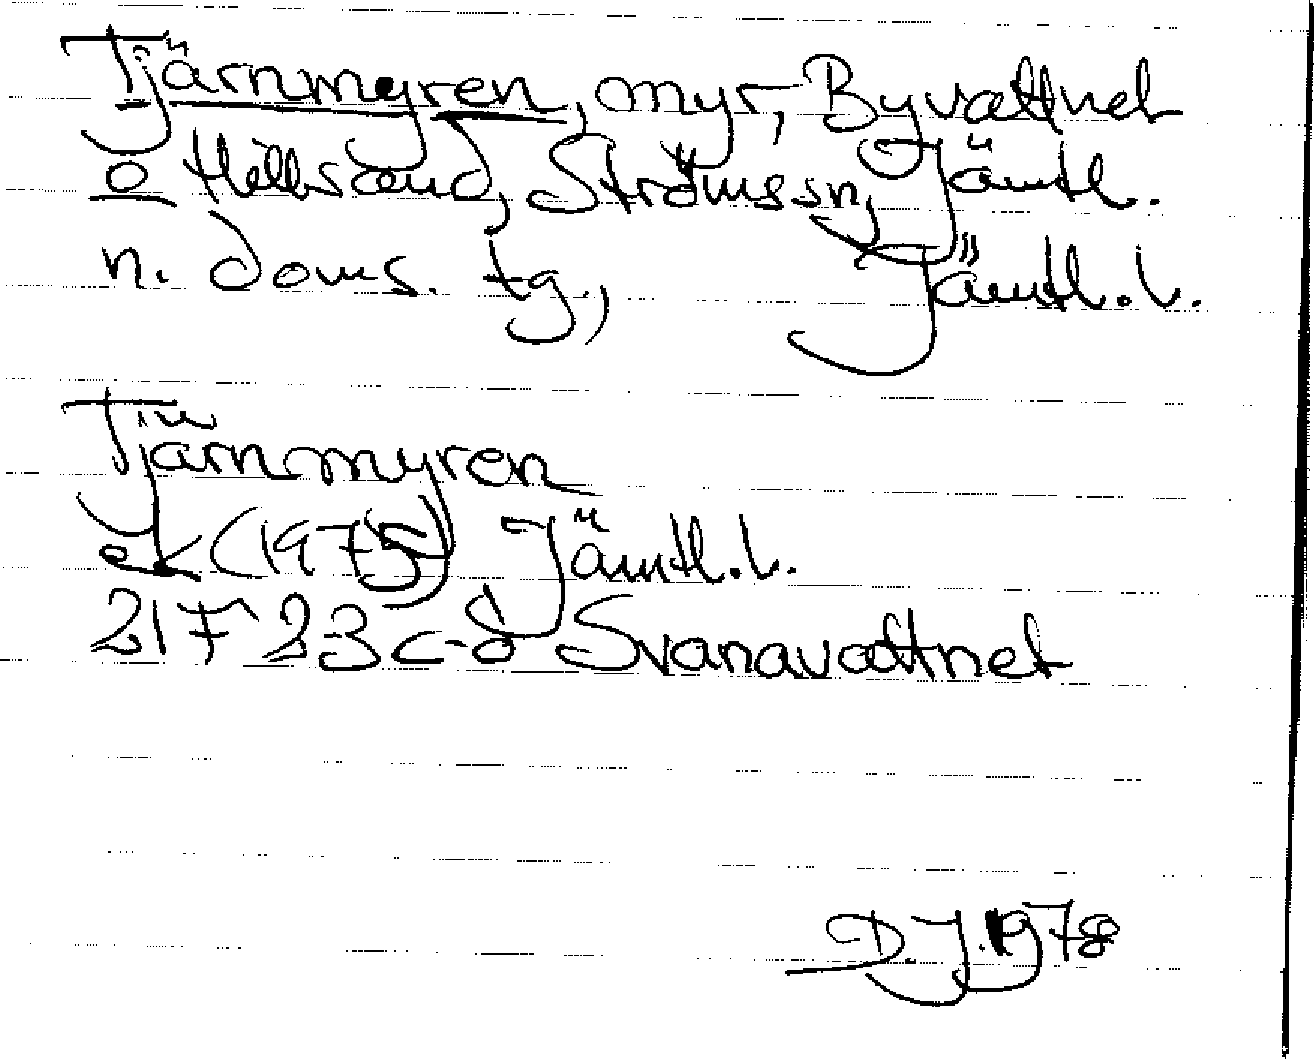 Tjärnmyren, myr, Byvattnet
o Hällsand, Ströms sn, Jämtl.
n. doms. tg., Jämtl. l.
Tjärnmyren
ek (1975) Jämtl. l.
21F 23 c-d Svanavattnet
D.J. 1978